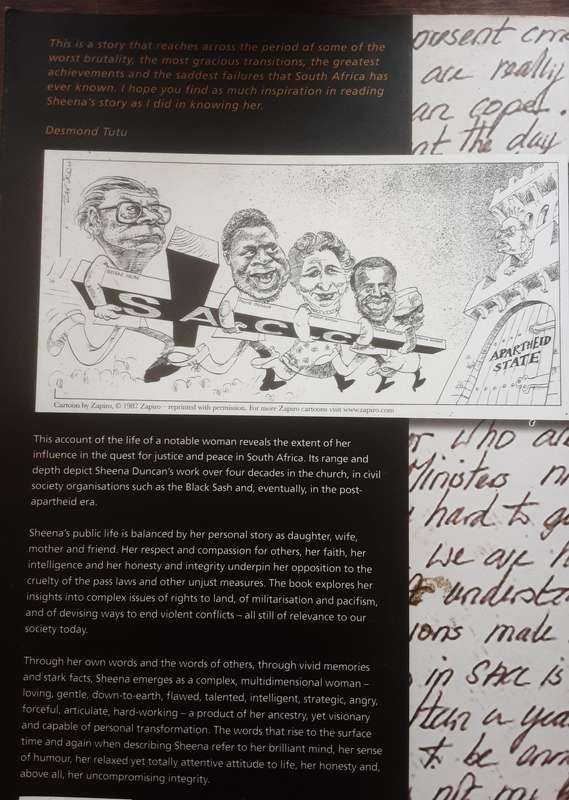 This is a story that reaches across the period of some of the
worst brutality, the most gracious transitions, the greatest
achievements and the saddest failures that South Africa has
ever known. I hope you find as much inspiration in reading
Sheena's story as I did in knowing her.
Desmond Tutu
SACC
APARTHEID
STATE
Cartoon by Zapiro, © 1987 Zapiro – reprinted with permission. For more Zapiro cartoons visit www.zapiro.com
This account of the life of a notable woman reveals the extent of her
influence in the quest for justice and peace in South Africa. Its range and
depth depict Sheena Duncan's work over four decades in the church, in civil
society organisations such as the Black Sash and, eventually, in the post-
apartheid era.
Sheena's public life is balanced by her personal story as daughter, wife,
mother and friend. Her respect and compassion for others, her faith, her
intelligence and her honesty and integrity underpin her opposition to the
cruelty of the pass laws and other unjust measures. The book explores her
insights into complex issues of rights to land, of militarisation and pacifism,
and of devising ways to end violent conflicts – all still of relevance to our
society today.
Through her own words and the words of others, through vivid memories
and stark facts, Sheena emerges as a complex, multidimensional woman –
loving, gentle, down-to-earth, flawed, talented, intelligent, strategic, angry,
forceful, articulate, hard-working – a product of her ancestry, yet visionary
and capable of personal transformation. The words that rise to the surface
time and again when describing Sheena refer to her brilliant mind, her sense
of humour, her relaxed yet totally attentive attitude to life, her honesty and,
above all, her uncompromising integrity.
present
are really
the day
who
Ministers
hard to
we are
made
in SACC is
a year
to be